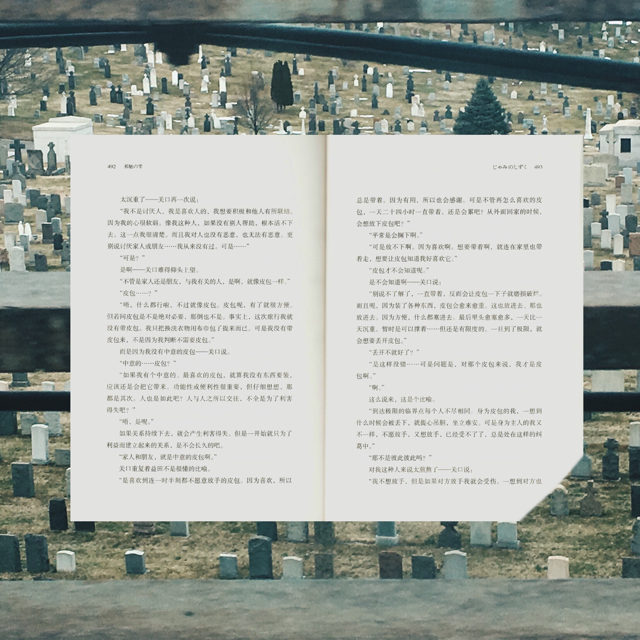 492
邪魅の雫
太沉重了——关口再一次说:
“我不是讨厌人，我是喜欢人的，我想要积极和他人有所联结。
因为我的心很软弱。像我这种人，如果没有别人帮助，根本活不下
去。这一点我很清楚。而且我对人也没有恶意，也无法有恶意。更
别说讨厌家人或朋友……我从来没有过。可是……”
“可是？”
是啊——关口难得仰头上望。
“不管是家人还是朋友，与我有关的人，是啊，就像皮包一样。”
“皮包……？”
“唔，什么都行啦，不过就像皮包。皮包呢，有了就很方便。
但若问皮包是不是绝对必要，那倒也不是。事实上，这次旅行我就
没有带皮包。我只把换洗衣物用布巾包了揽来而已，可是我没有带
皮包来，不是因为我判断不需要皮包。
而是因为我没有中意的皮包——关口说。
“中意的……皮包？”
“如果我有个中意的、最喜欢的皮包，就算我没有东西要装，
应该还是会把它带来。功能性或便利性很重要，但仔细想想，那
都是其次。人也是如此吧？人与人之所以交往，不全是为了利害
得失吧？”
“唔，是呢。”
如果关系持续下去，就会产生利害得失。但是一开始就只为了
利益而建立起来的关系，是不会长久的吧。
“家人和朋友，就是中意的皮包啊。”
关口重复着益田不是很懂的比喻。
“是喜欢到连一时半刻都不愿意放手的皮包。因为喜欢，所以
じゃみのしずく
493
总是带着。因为有用，所以也会感谢。可是不管再怎么喜欢的皮
包，一天二十四小时一直带着，还是会累吧？从外面回家的时候，
会想放下皮包吧？”
“平常是会搁下啊。”
“可是放不下啊。因为喜欢啊，想要带着啊，就连在家里也带
着走，想要让皮包知道我好喜欢它。”
“皮包才不会知道呢。”
是不会知道啊——关口说:
“别说不了解了，一直带着，反而会让皮包一下子就磨损破烂。
而且呢，因为装了各种东西，皮包会愈来愈重。这也放进去，那也
放进去，因为方便，什么都塞进去。最后里头愈塞愈多，一天比一
天沉重。暂时是可以撑着……但还是有限度的。一旦到了极限，就
会想要丢开皮包。”
“丢开不就好了？”
“是这样没错……可是问题是，对那个皮包来说，我才是皮
包啊。”
“啊。”
这么说来，这是个比喻。
“到达极限的临界点每个人不尽相同。身为皮包的我，一想到
什么时候会被丢下，就提心吊胆，坐立难安。可是身为主人的我又
不一样，不愿放手，又想放手，已经受不了了。总是处在这样的纠
葛中。”
“那不是彼此彼此吗？”
对我这种人来说太煎熬了——关口说:
“我不想放手，但是如果对方放手我就会受伤。一想到对方也